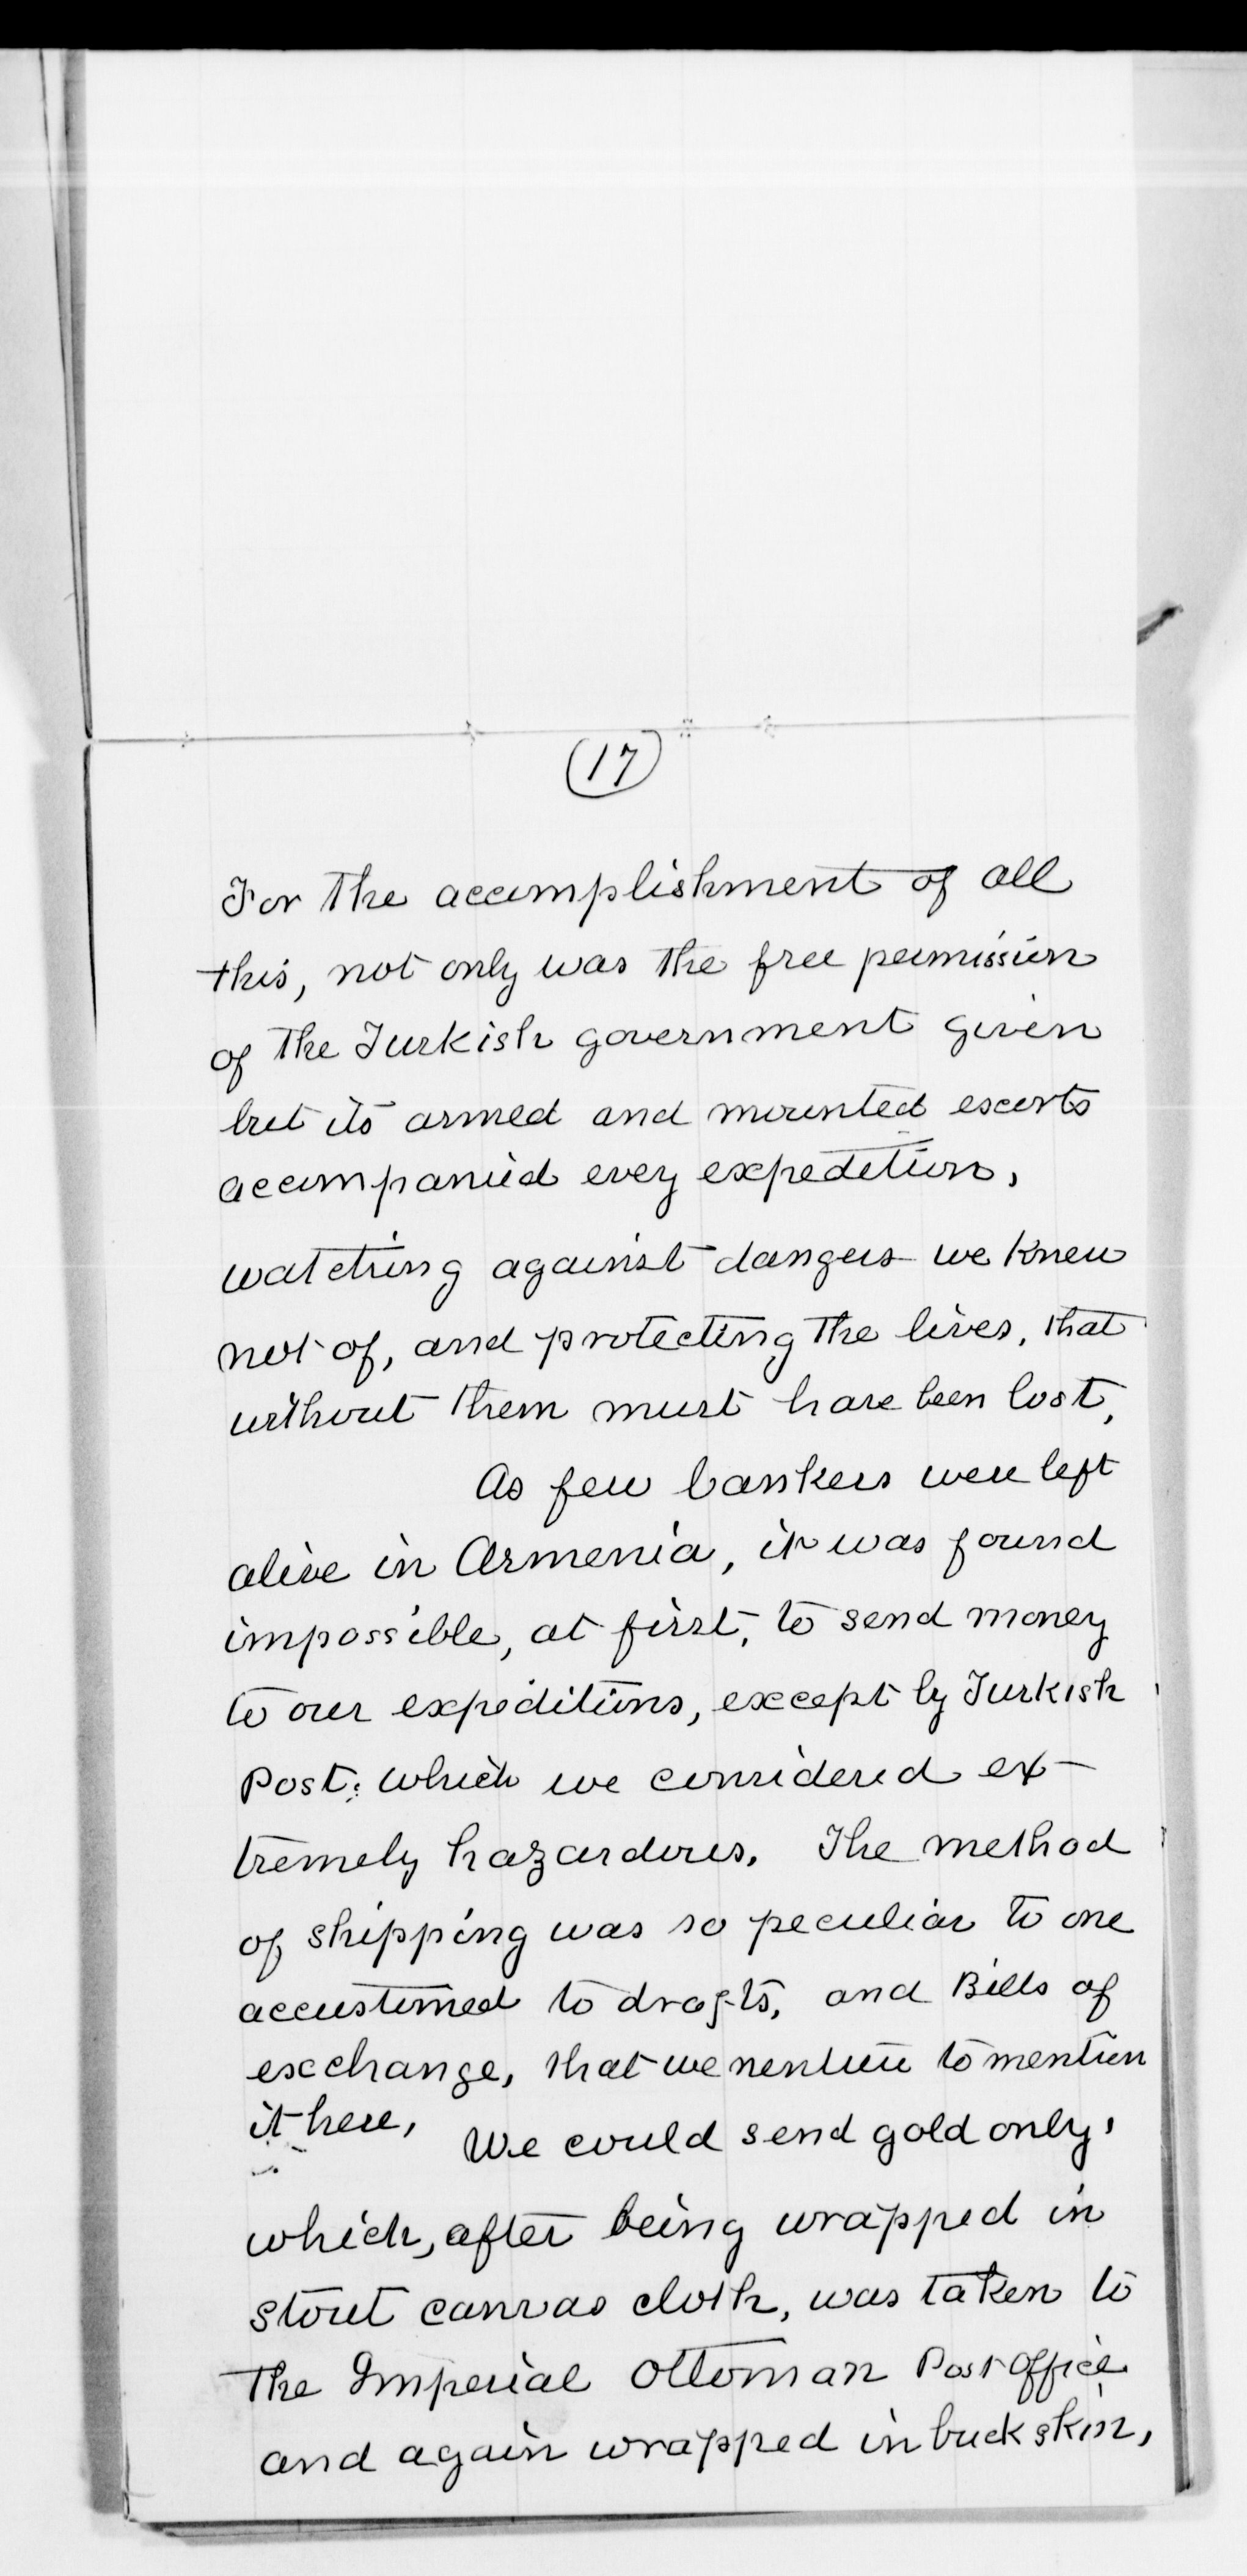 (17)
For the accomplishment of all
this, not only was the free permission
of the Turkish government given
but its armed and mounted escorts
accompanied every expedition,
watching against dangers we knew
not of, and protecting the lives, that
without them must have been lost,
As few bankers were left
alive in Armenia, it was found
impossible, at first, to send money
to our expeditions, except by Turkish
Post: which we considered ex-
tremely hazardous. The method
of shipping was so peculiar to one
accustomed to drafts, and Bills of
exchange, that we venture to mention
it here, We could send gold only,
which, after being wrapped in
stout canvas cloth, was taken to
the Imperial Ottoman Post Office
and again wrapped in buck skin,